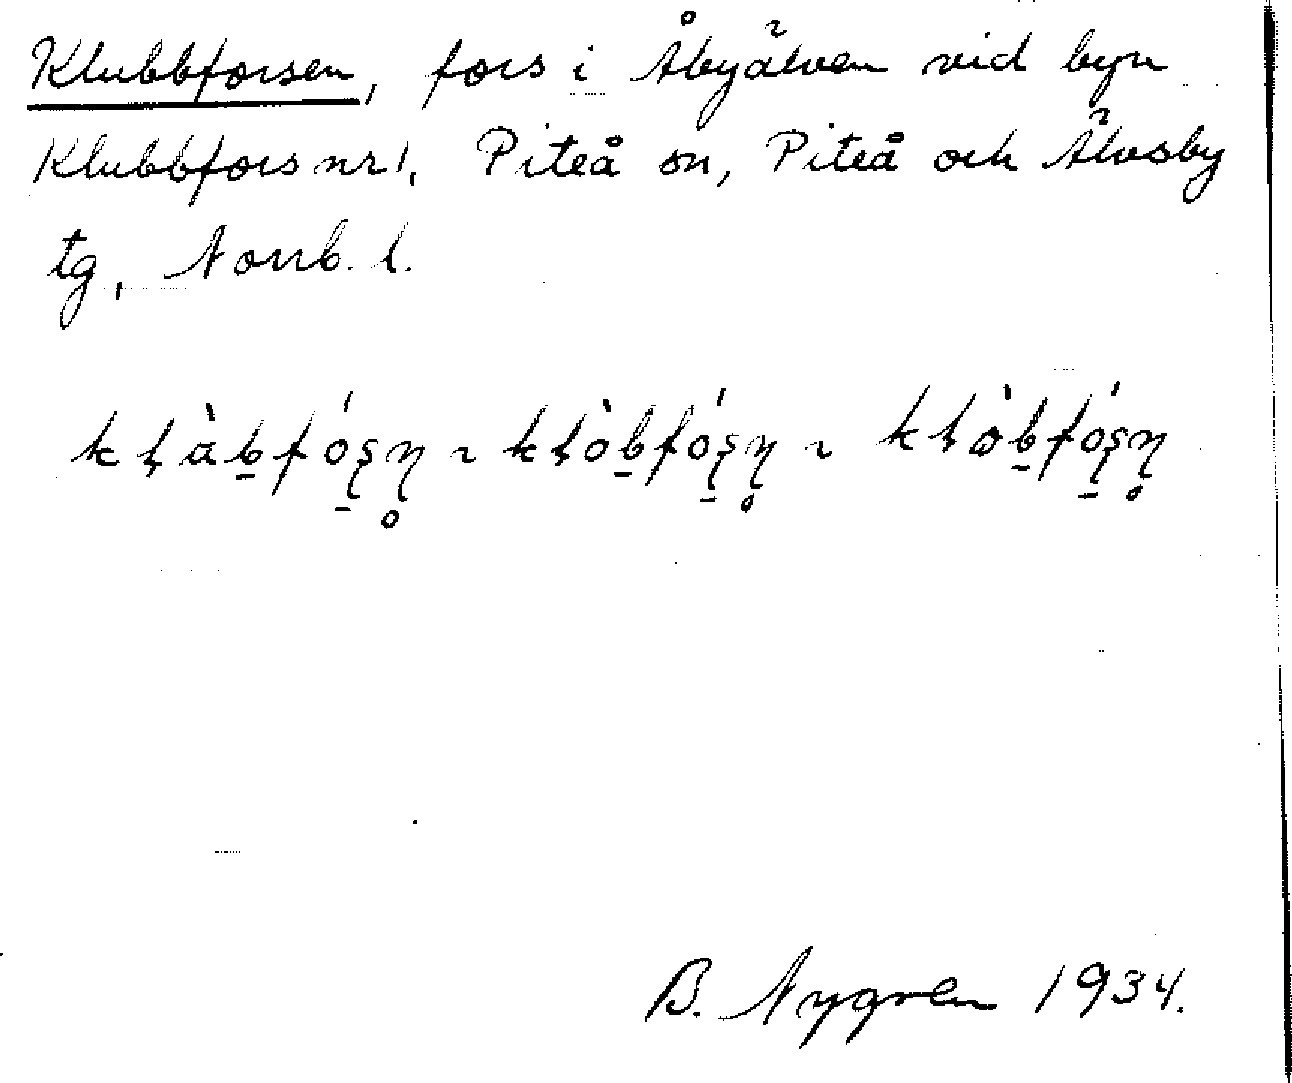 Klubbforsen, fors i Åbyälven vid byn
Klubbfors nr 1, Piteå sn, Piteå och Älvsby
tg, Norrb. l.
B. Nygren 1934.